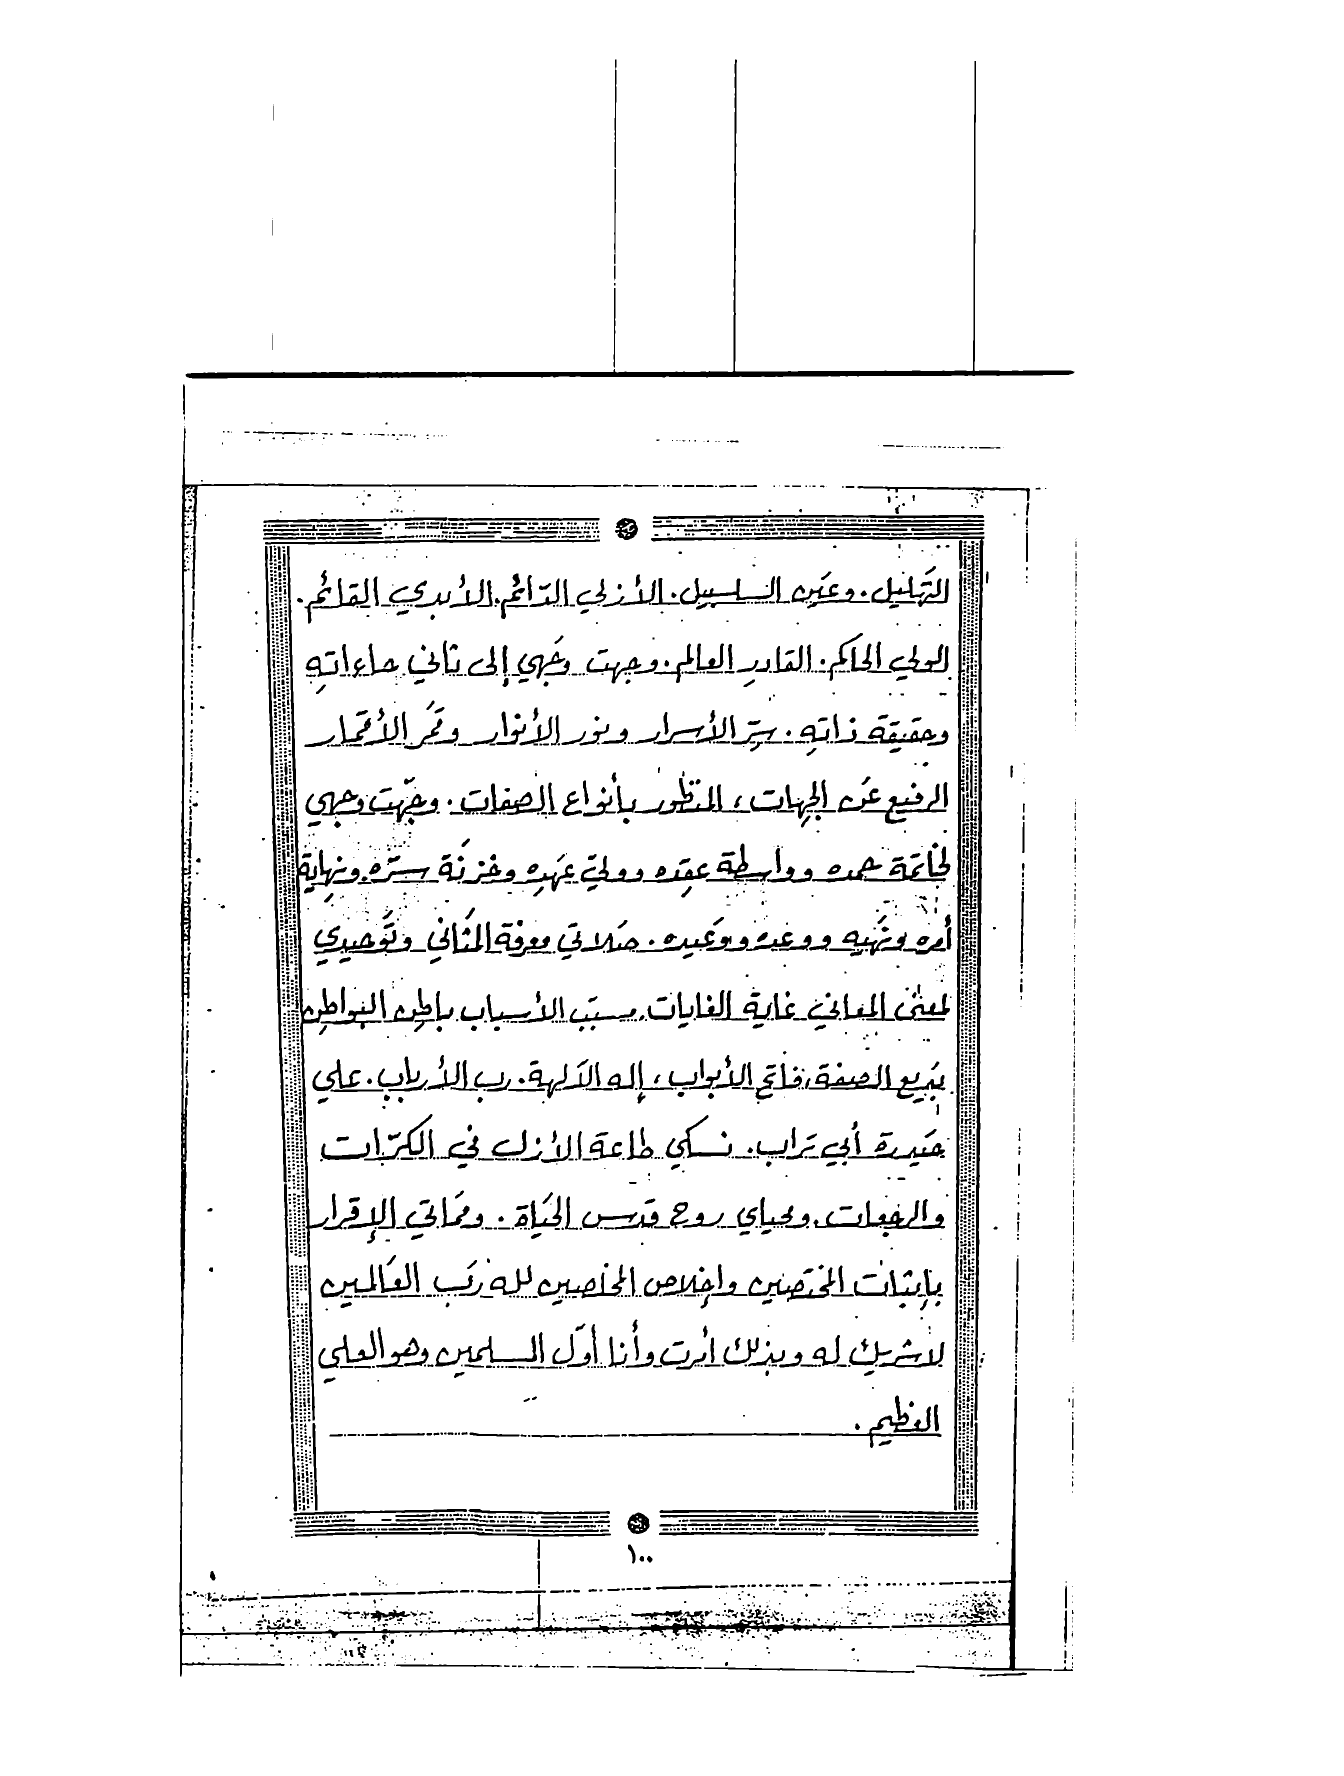 التَهليل. وعَين السلسبيل. الأزلي الدّائم. الأبدي القائم.
الولي الحاكم. القادر العالم. وجهت وجَهي إلى ثاني حاءاتهِ
وحقيقة ذاتهِ. سِرّ الأسرار ونور الأنوار وقمَر الأقمار
الرفيع عَن الجِهات، المنظور بأنواع الصفات. وجّهت وجهي
لخاتمة حمده وواسطة عقِده ووليّ عهَدِه وخزنَة سرّه. ونهِاية
أمره ونهَيه ووعده ووعَيده. صَلاتي معرفة المثَاني وتَوحيدي
لمعنى المعاني غاية الغايات. مسبّب الأسباب باطِن البواطِن
بَديع الصفة، فاتح الأبواب، إله الآلهة. رب الأرباب. علي
حَيدرة أبي تَراب. نسكي طاعة الأزل في الكرّات
والرجعات. ومحياي روح قدس الحيَاة. وممَاتي الإقرار
بإِثبات المختصَين وإخلاص المخلصين لله رَب العَالمين
لا شريك له وبذلك أمرت وأنا أوّل المسلمين وهو العلي
العظيم.
١٠٠